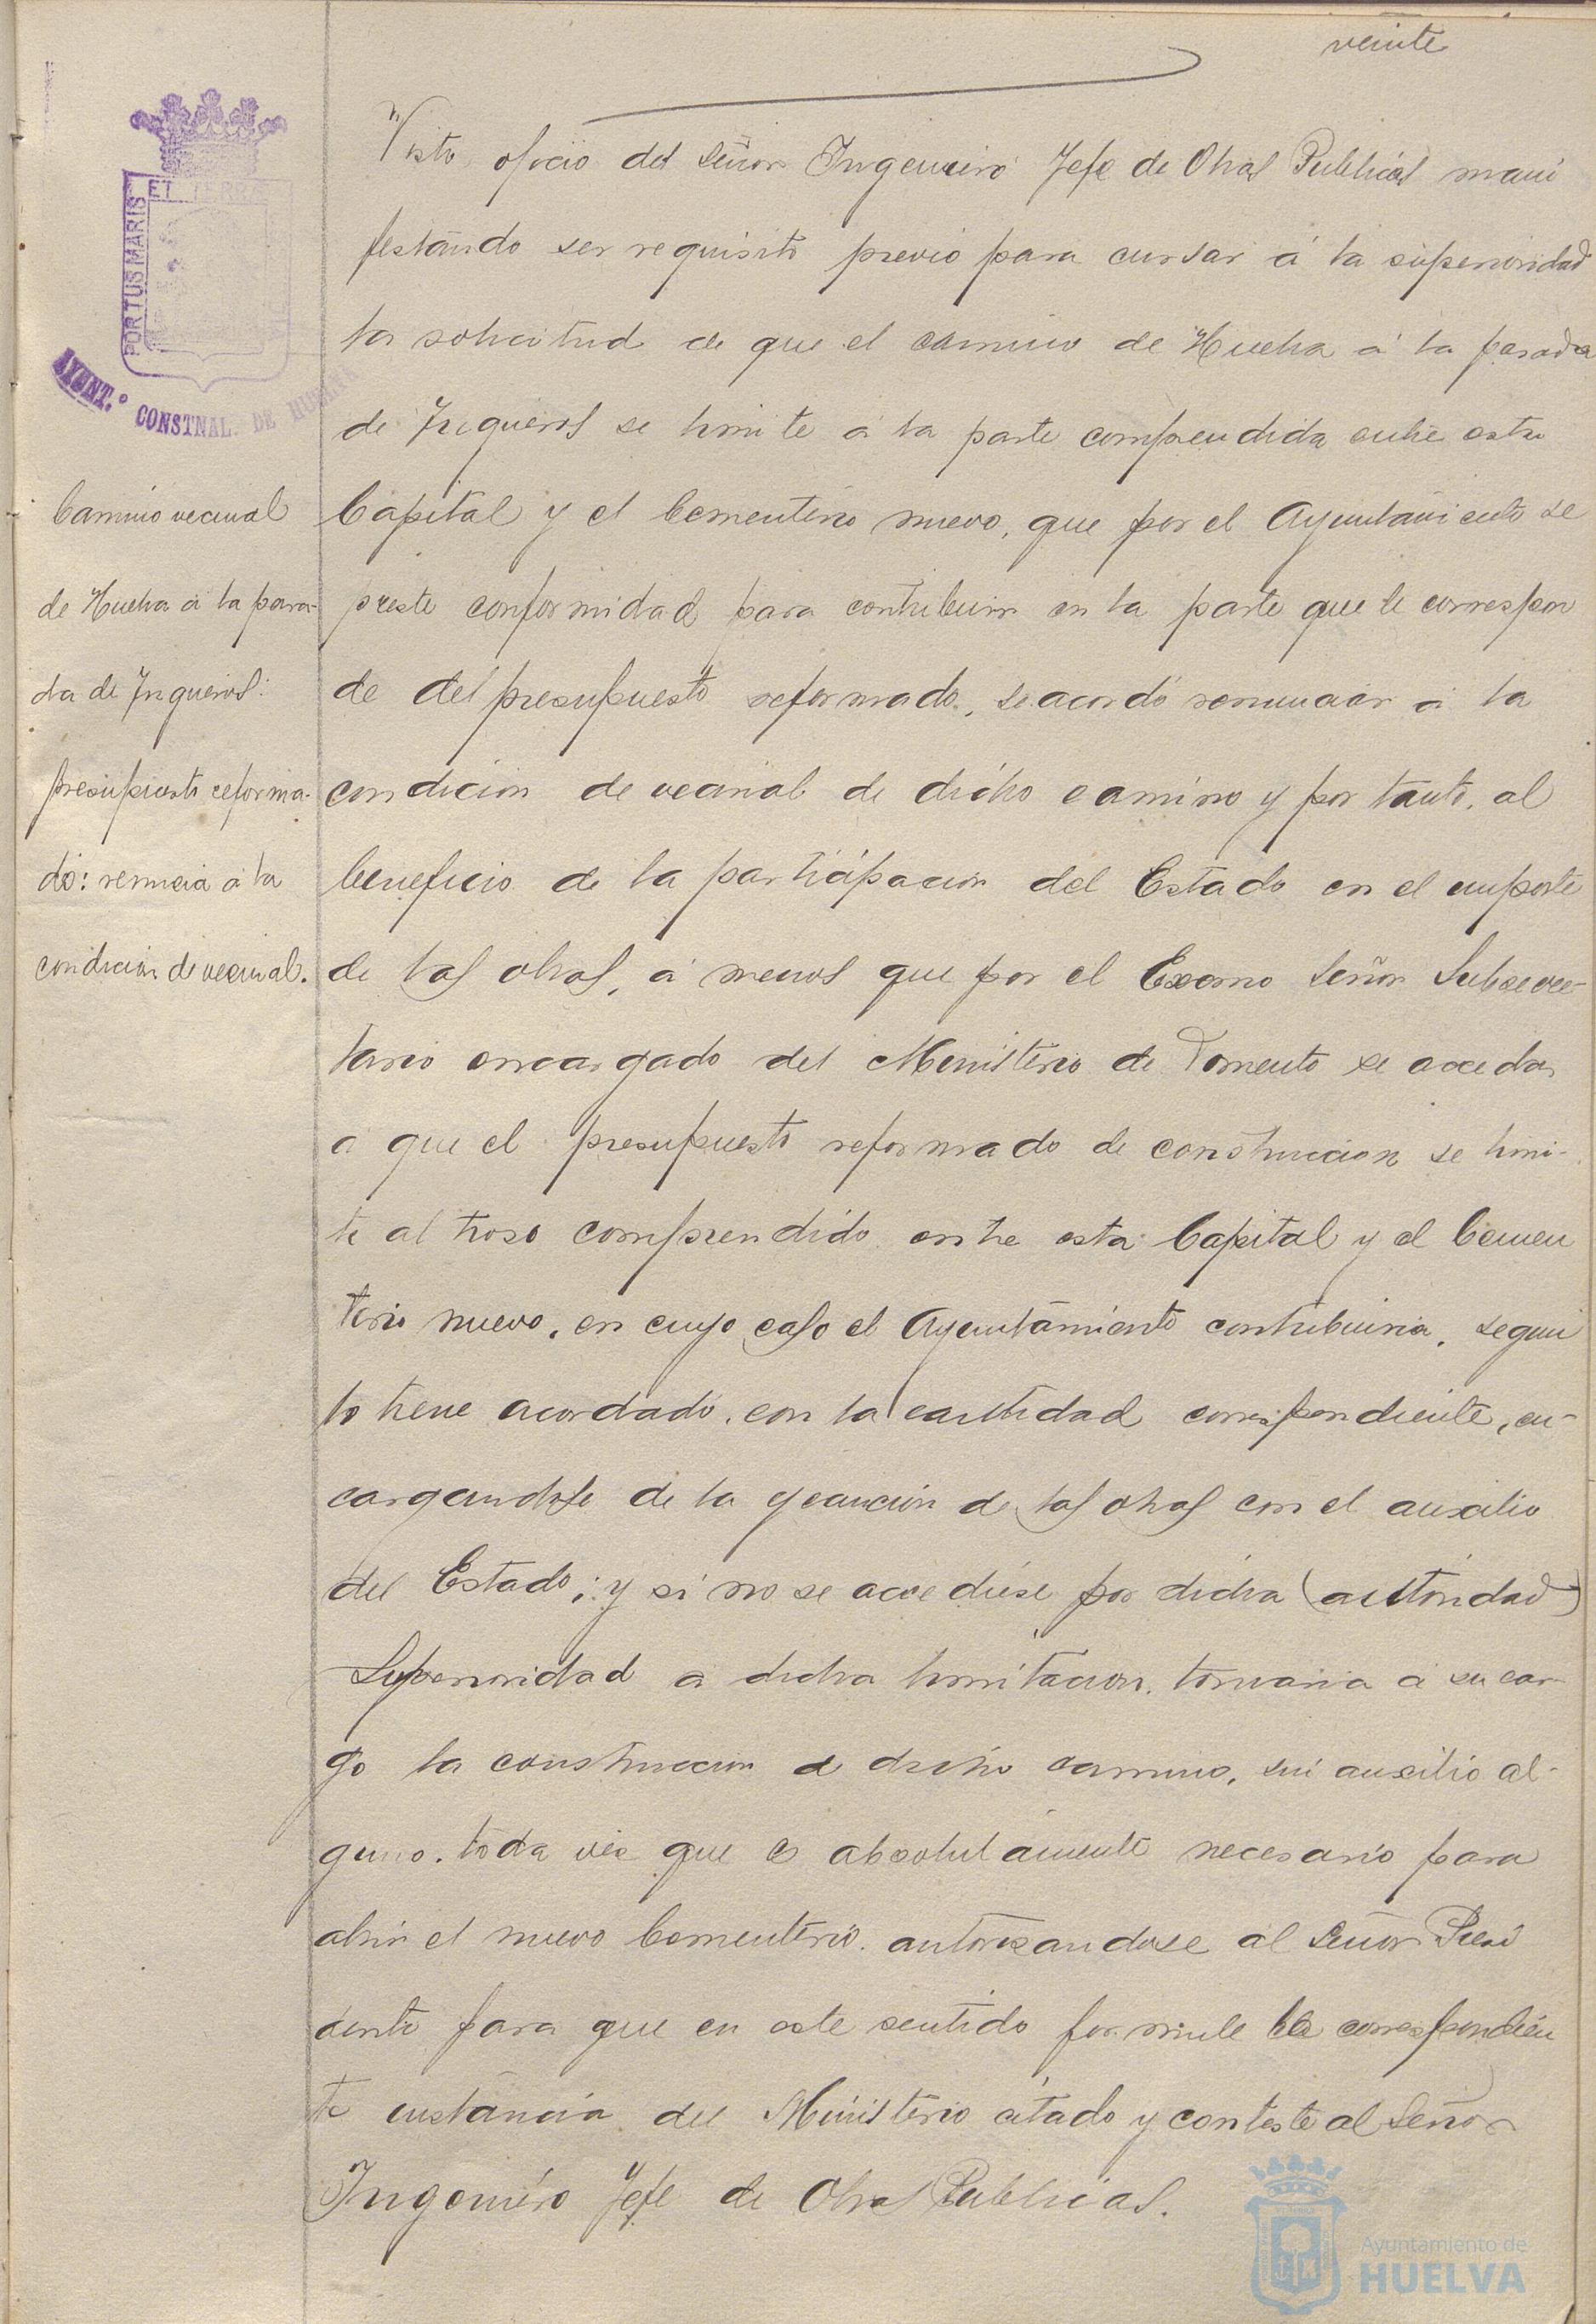 veinte
PORTUS MARIS
ET TERRÆ
AYUNT.º CONSTNAL. DE HUELVA
Camino vecinal
de Huelva á la para-
da de Trigueros:
presupuesto reforma-
do: renuncia á la
condicion de vecinal.
Visto oficio del Señor Ingeniero Jefe de Obras Publicas mani
festando ser requisito previo para cursar á la superioridad
la solicitud de que el camino de Huelva á la parada
de Trigueros se limite á la parte comprendida entre esta
Capital y el Cementerio nuevo, que por el Ayuntamiento se
preste conformidad para contribuir en la parte que le correspon
de del presupuesto reformado, se acordó renunciar á la
condicion de vecinal de dicho camino y por tanto, al
beneficio de la participacion del Estado en el importe
de las obras, á menos que por el Excmo Señor Subsecre-
tario encargado del Ministerio de Fomento se acceda
a que el presupuesto reformado de construccion se limi-
te al troso comprendido entre esta Capital y el Cemen
terio nuevo, en cuyo caso el Ayuntamiento contribuiria, segun
lo tiene acordado, con la cantidad correspondiente, en-
cargandose de la ejecucion de las obras con el auxilio
del Estado; y si no se accediese por dicha (autoridad)
Superioridad á dicha limitacion, tomaria á su car-
go la construccion de dicho camino, sin auxilio al-
guno, toda vez que es absolutamente necesario para
abrir el nuevo Cementerio, autorizandose al Señor Presi
dente para que en este sentido formule la correspondien
te instancia del Ministerio citado y conteste al Señor
Ingeniero Jefe de Obras Publicas.
Ayuntamiento de
HUELVA